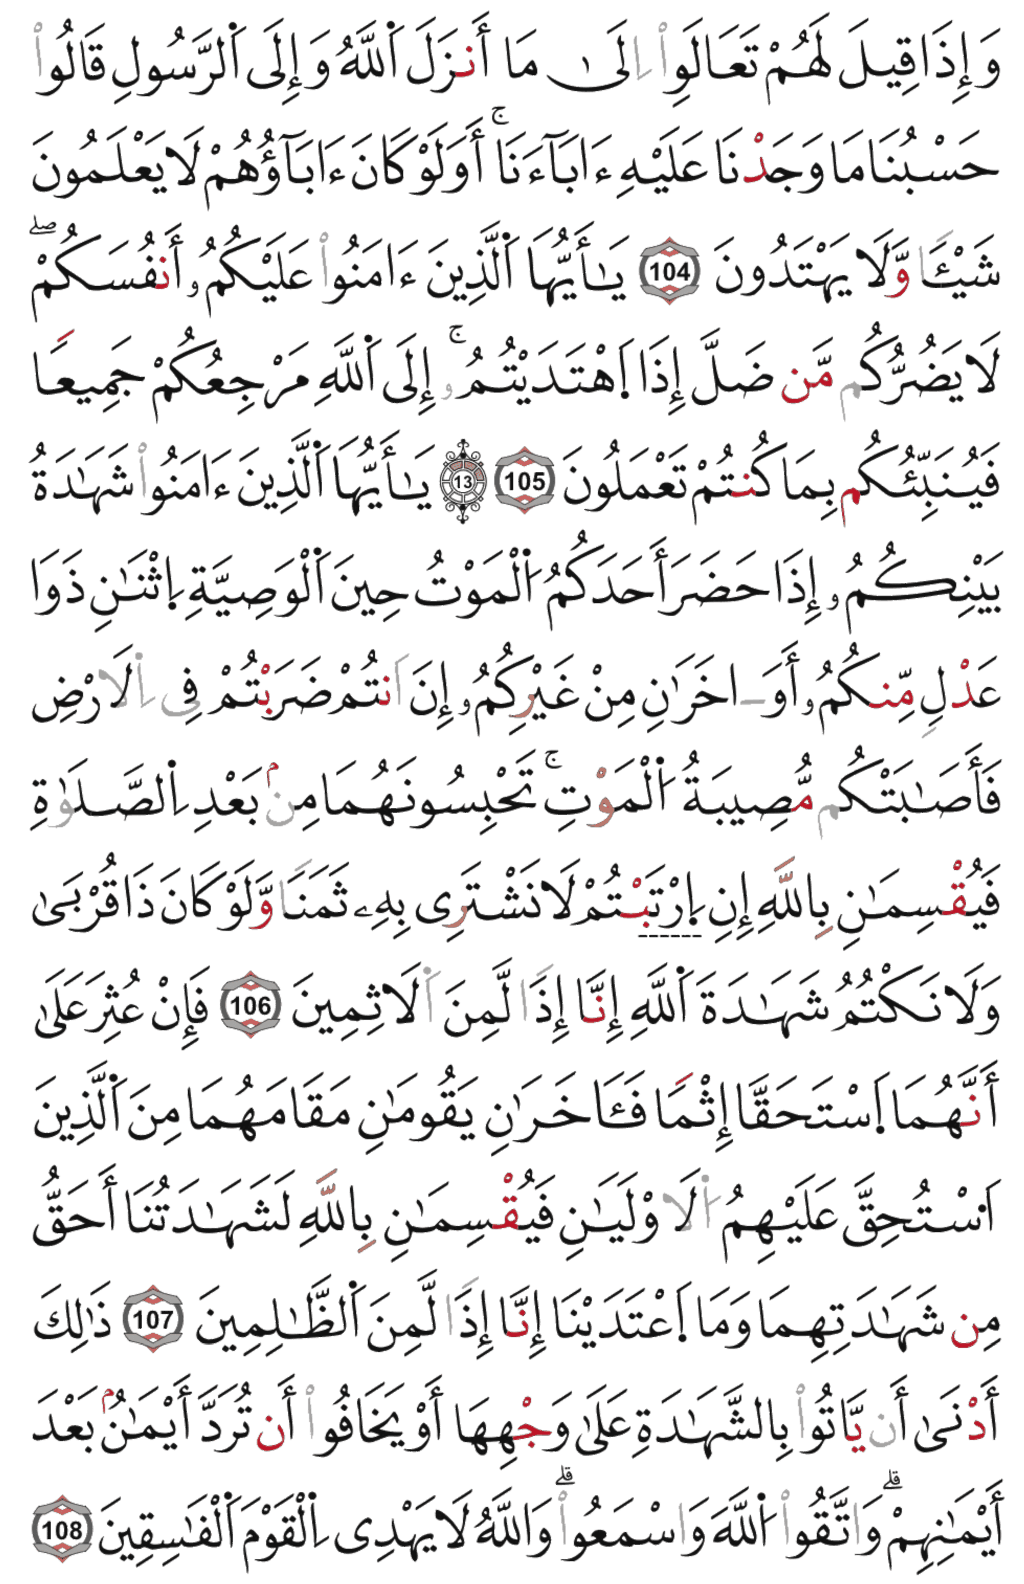 وَإِذَا قِيلَ لَهُمْ تَعَالَوِاْ اِلَىٰ مَا أَنزَلَ اَ۬للَّهُ وَإِلَى اَ۬لرَّسُولِ قَالُواْ
حَسْبُنَا مَا وَجَدْنَا عَلَيْهِ ءَابَآءَنَاۚ أَوَلَوْ كَانَ ءَابَآؤُهُمْ لَا يَعْلَمُونَ
شَيْـًٔا وَّلَا يَهْتَدُونَ 104 يَـٰأَيُّهَا اَ۬لَّذِينَ ءَامَنُواْ عَلَيْكُمُۥ أَنفُسَكُمْۖ
لَا يَضُرُّكُم مَّن ضَلَّ إِذَا اَ۪هْتَدَيْتُمُۥۚ إِلَى اَ۬للَّهِ مَرْجِعُكُمْ جَمِيعًا
فَيُنَبِّئُكُم بِمَا كُنتُمْ تَعْمَلُونَ 105 13 يَـٰأَيُّهَا اَ۬لَّذِينَ ءَامَنُواْ شَهَـٰدَةُ
بَيْنِكُمُۥ إِذَا حَضَرَ أَحَدَكُمُ اُ۬لْمَوْتُ حِينَ اَ۬لْوَصِيَّةِ اِ۪ثْنَـٰنِ ذَوَا
عَدْلٍ مِّنكُمُۥ أَوَ ـاخَرَٰنِ مِنْ غَيْرِكُمُۥ إِنَ اَنتُمْ ضَرَبْتُمْ فِى اِ۬لَارْضِ
فَأَصَـٰبَتْكُم مُّصِيبَةُ اُ۬لْمَوْتِۚ تَحْبِسُونَهُمَا مِنۢ بَعْدِ اِ۬لصَّلَوٰةِ
فَيُقْسِمَـٰنِ بِاللَّهِ إِنِ اِ۪رْتَبْتُمْ لَا نَشْتَرِى بِهِۦ ثَمَنًا وَّلَوْ كَانَ ذَا قُرْبَىٰ
وَلَا نَكْتُمُ شَهَـٰدَةَ اَ۬للَّهِ إِنَّا إِذًا لَّمِنَ اَ۬لَاثِمِينَ 106 فَإِنْ عُثِرَ عَلَىٰ
أَنَّهُمَا اَ۪سْتَحَقَّا إِثْمًا فَـَٔاخَرَٰنِ يَقُومَـٰنِ مَقَامَهُمَا مِنَ اَ۬لَّذِينَ
اَسْتُحِقَّ عَلَيْهِمُ اُ۬لَاوْلَيَـٰنِ فَيُقْسِمَـٰنِ بِاللَّهِ لَشَهَـٰدَتُنَا أَحَقُّ
مِن شَهَـٰدَتِهِمَا وَمَا اَ۪عْتَدَيْنَا إِنَّا إِذًا لَّمِنَ اَ۬لظَّـٰلِمِينَ 107 ذَٰلِكَ
أَدْنَىٰ أَن يَّاتُواْ بِالشَّهَـٰدَةِ عَلَىٰ وَجْهِهَا أَوْ يَخَافُواْ أَن تُرَدَّ أَيْمَـٰنُۢ بَعْدَ
أَيْمَـٰنِهِمْۗ وَاتَّقُواْ اُ۬للَّهَ وَاسْمَعُواْۗ وَاللَّهُ لَا يَهْدِى اِ۬لْقَوْمَ اَ۬لْفَـٰسِقِينَ 108